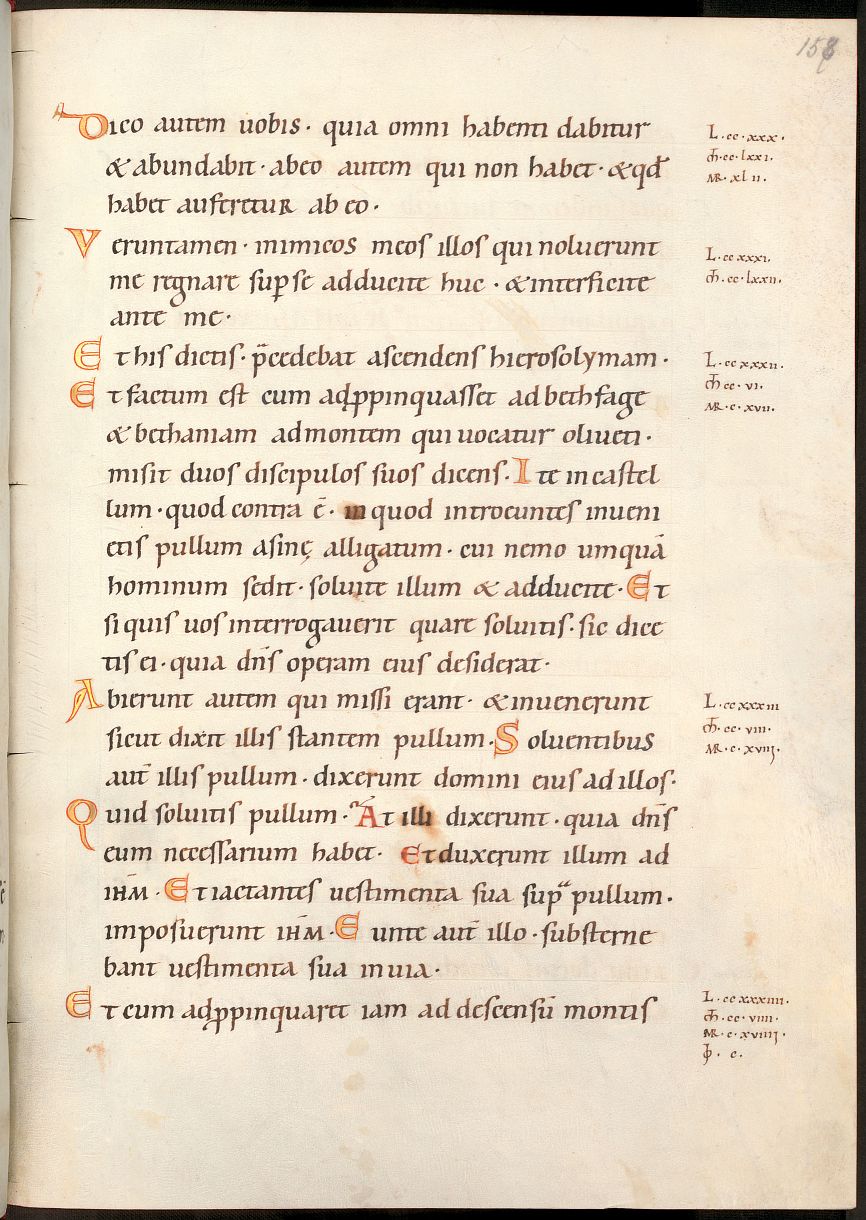 158
Dico autem uobis· quia omni habenti dabitur
&abundabit· abeo autem qui non habet· &qđ
habet auferetur ab eo·
Veruntamen· inimicos meos illos qui noluerunt
me regnare sup̱ se adducite huc· &interficite
ante me·
Et his dictis· p̄cedebat ascendens hierosolymam·
Et factum est cum adp̱pinquasset ad bethfage
& bethaniam ad montem qui uocatur oliueti·
misit duos discipulos suos dicens· Ite in castel
lum· quod contra ē· in quod introeuntes inueni
etis pullum asinę alligatum· cui nemo umquā
hominum sedit· soluite illum & adducite· Et
si quis uos interrogauerit quare soluitis· sic dice
tis ei· quia dn̄s operam eius desiderat·
Abierunt autem qui missi erant· &inuenerunt
sicut dixit illis stantem pullum· Soluentibus
aut̄ illis pullum· dixerunt domini eius ad illos·
Quid soluitis pullum· At illi dixerunt· quia dn̄s
eum necessarium habet· Et duxerunt illum ad
ih̄m· Et iactantes uestimenta sua sup̱ pullum·
imposuerunt ih̄m· Eunte aut̄ illo· substerne
bant uestimenta sua in uia·
Et cum adp̱pinquaret iam ad descensū montis
L·cc·xxx·
m̄·cc·lxxi·
MR·xlii·
L·ccxxxi·
m̄·cc·lxxii·
L·ccxxxii·
m̄ cc·vi·
MR·c·xvii·
L·ccxxxiii
m̄·cc·viii·
MR·c·xviii·
L·ccxxxiiii·
m̄·cc·viiii·
MR·c·xviiii·
ƥ· c·